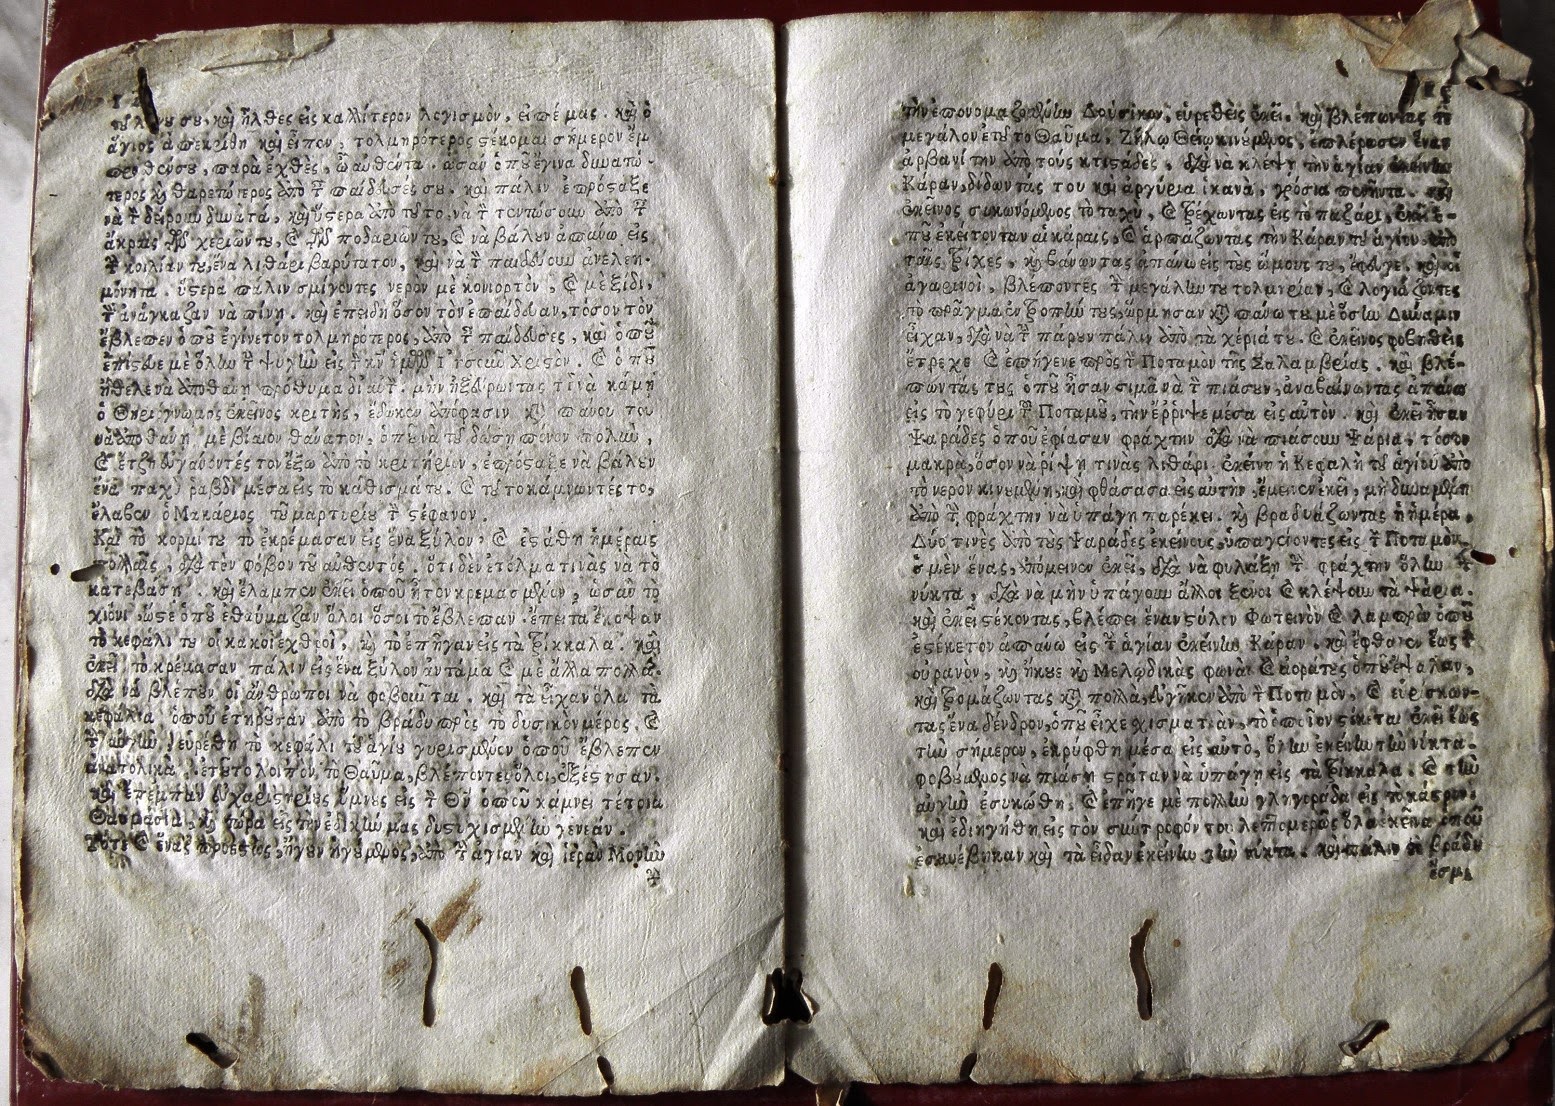 καὶ ἦλθες εἰς καλλίτερον λογισμὸν, εἰπέ μας. καὶ ὁ
ἅγιος ἀπεκρίθη καὶ εἶπεν, τολμηρότερος στέκομαι σήμερον
παρὰ ἐχθὲς, ὦ αὐθέντα. ὡσὰν ὁποῦ ἔγινα δυνατώ-
τερος καὶ θαρετώτερος ἀπὸ τ παίδευσές σου. καὶ πάλιν ἐπρόσταξε
νὰ τ δείρουν δυνατὰ, καὶ ὕστερα ἀπὸ τοῦτο, νὰ τ τεντώσουν ἀπὸ τ
ἄκραις τῶν χεριῶν του, καὶ τῶν ποδαριῶν του, καὶ νὰ βάλουν ἀπάνω εἰς
τ κοιλίαν του, ἕνα λιθάρι βαρύτατον, καὶ νὰ τ παιδεύουν ἀνελεη-
μόνητα. ὕστερα πάλιν σμίγοντες νερὸν μὲ κονιορτὸν, καὶ μὲ ξίδι,
τ ἀνάγκαζαν νὰ πίνῃ. καὶ ἐπειδὴ ὅσον τὸν ἐπαίδευαν, τόσον τὸν
ἔβλεπεν ὁποῦ ἐγίνετον τολμηρότερος, ἀπὸ τ παίδευσες, καὶ ὁποῦ
ἐπίστευε μὲ ὅλην τ ψυχὴν εἰς τ κν ἡμῶν Ἰησοῦν Χριστόν. καὶ ὁποῦ
ἤθελε νὰ ἀποθάνῃ πρόθυμα δι αὐτ. μὴν ἠξεύρωντας τί νὰ κάμῃ
ὁ Θηριόγνωμος ἐκεῖνος κριτὴς, ἔδωκεν ἀπόφασιν ἐπάνου του
νὰ ἀποθάνῃ μὲ βίαιον θάνατον, ὁποῦ νὰ τοῦ δώσῃ πόνον πολὺν,
καὶ ἔτζη εὐγάνοντές τον ἔξω ἀπὸ τὸ κριτήριον, ἐπρόσταξε νὰ βάλουν
ἕνα παχὺ ραβδὶ μέσα εἰς τὸ κάθισμά του. καὶ τοῦτο κάμνωντές το,
ἔλαβεν ὁ Μακάριος τοῦ μαρτυρίου τ στέφανον.
Καὶ τὸ κορμί του τὸ ἐκρέμασαν εἰς ἕνα ξύλον, καὶ ἐστάθη ἡμέραις
πολλαῖς, διὰ τὸν φόβον τοῦ αὐθεντός. ὅτι δὲν ἐτόλμα τινὰς νὰ τὸ
κατεβάσῃ. καὶ ἔλαμπεν ἐκεῖ ὁποῦ ἦτον κρεμασμένον, ὡσὰν τὸ
χιόνι, ὥστε ὁποῦ ἐθαύμαζαν ὅλοι ὅσοι τὸ ἔβλεπαν. ἔπειτα ἔκοψαν
τὸ κεφάλι του οἱ κακοὶ ἐχθροὶ, καὶ τὸ ἐπῆγαν εἰς τὰ Τρίκκαλα. καὶ
ἐκεῖ τὸ κρέμασαν πάλιν εἰς ἕνα ξύλον ἀντάμα καὶ μὲ ἄλλα πολλά.
διὰ νὰ βλέπουν οἱ ἄνθρωποι νὰ φοβοῦνται. καὶ τὰ εἶχαν ὅλα τὰ
κεφάλια ὁποῦ ἐτηροῦσαν ἀπὸ τὸ βράδυ πρὸς τὸ δυσικὸν μέρος. καὶ
τ αὐγὴν, εὑρέθη τὸ κεφάλι τοῦ ἁγίου γυρισμένον ὁποῦ ἔβλεπεν
ἀνατολικά. ἐτοῦτο λοιπὸν τὸ Θαῦμα, βλέποντές ὅλοι, ἐξέστησαν.
καὶ ἔπεμπαν εὐχαριστηρίους ὕμνους εἰς τ Θν ὁποῦ κάμνει τέτοια
Θαυμάσια, καὶ τώρα εἰς τὴν ἐδικήν μας δυστιχισμένην γενεάν.
Τότε καὶ ἕνας προεστὸς, ἤγουν ἡγούμενος, ἀπὸ τ ἁγίαν καὶ ἱερὰν Μονὴν
τ
τὴν ἐπονομαζομένην Δούσικον, εὑρεθεὶς ἐκεῖ. καὶ βλέπωντας τὸ
μεγάλον ἐτοῦτο Θαῦμα, Ζήλῳ Θείῳ κινούμενος, ἐπλέρωσεν ἕναν
ἀρβανίτην ἀπὸ τοὺς κτιστάδες, διὰ νὰ κλέψῃ τὴν ἁγίαν ἐκείνην
Κάραν, δίδωντάς του καὶ ἀργύρια ἱκανὰ, γρόσια πενῆντα. καὶ
ἐκεῖνος συκωνόμενος τὸ ταχὺ, καὶ τρέχωντας εἰς τὸ παζάρι, ἐκεῖ ὁ-
ποῦ ἐκείτονταν αἱ κάραις, καὶ ἁρπάζωντας τὴν Κάραν τοῦ ἁγίου, ἀπὸ
ταῖς τρίχες, καὶ βάνωντας ἀπάνω εἰς τοὺς ὤμους του, ἔφυγε. καὶ οἱ
ἀγαρινοὶ, βλέποντές τ μεγάλην του τολμηρίαν, καὶ λογιάζοντες
τὸ πρᾶγμα ἐντροπήν τους, ὥρμησαν ἐπάνω του μὲ ὅσην Δύναμιν
εἶχαν, διὰ νὰ τ πάρουν πάλιν ἀπὸ τὰ χέριά του. καὶ ἐκεῖνος φοβηθεὶς
ἔτρεχε καὶ ἐπήγενε πρὸς τ Ποταμὸν τῆς Σαλαμβρίας. καὶ βλέ-
πωντάς τους ὁποῦ ἦσαν σιμὰ νὰ τ πιάσουν, ἀναβαίνωντας ἀπάνω
εἰς τὸ γεφύρι τ Ποταμοῦ, τὴν ἔρριψε μέσα εἰς αὐτόν. καὶ ἐκεῖ ἦσαν
Ψαράδες ὁποῦ ἔφιασαν φράχτην διὰ νὰ πιάσουν Ψάρια, τόσον
μακρὰ, ὅσον νὰ ρίψῃ τινὰς λιθάρι. ἐκείνη ἡ Κεφαλὴ τοῦ ἁγίου ἀπὸ
τὸ νερὸν κινουμένη, καὶ φθάσασα εἰς αὐτὴν, ἔμεινεν ἐκεῖ, μὴ δυναμένη
ἀπὸ τ φράχτην νὰ ὑπάγῃ παρέκει. καὶ βραδυάζωντας ἡ ἡμέρα,
Δύο τινὲς ἀπὸ τοὺς Ψαράδες ἐκείνους, ὑπαγένοντες εἰς τ Ποταμὸν,
ὁ μὲν ἕνας, ἀπόμεινεν ἐκεῖ, διὰ νὰ φυλάξῃ τ φράχτην ὅλην τ
νύκτα, διὰ νὰ μὴν ὑπάγουν ἄλλοι ξένοι καὶ κλέψουν τὰ ψάρια.
καὶ ἐκεῖ στέκοντας, βλέπει ἕναν στύλον Φωτεινὸν καὶ λαμπρὸν ὁποῦ
ἐστέκετον ἀπάνω εἰς τ ἁγίαν ἐκείνην Κάραν. καὶ ἔφθανεν ἕως τ
οὐρανὸν, καὶ ἤκουε καὶ Μελωδικὰς φωνὰς καὶ ἀοράτους ὁποῦ ἔψαλαν,
καὶ τρομάζωντας καὶ πολλὰ, εὐγῆκεν ἀπὸ τ Ποταμὸν, καὶ εὑρίσκων-
τας ἕνα δένδρον, ὁποῦ εἶχε χισματίαν, τὸ ὁποῖον στέκεται ἐκεῖ ἕως
τὴν σήμερον, ἐκρύφθη μέσα εἰς αὐτὸ, ὅλην ἐκείνην τὴν νύκτα.
φοβούμενος νὰ πιάσῃ στράταν νὰ ὑπάγῃ εἰς τὰ Τρίκκαλα. καὶ τὴν
αὐγὴν ἐσυκώθη, καὶ ἐπῆγε μὲ πολλὴν γληγοράδα εἰς τὸ κάστρον.
καὶ ἐδιηγήθη εἰς τὸν σύντροφόν του λεπτομερῶς ὅλα ἐκεῖνα ὁποῦ
ἐσυνέβηκαν καὶ τὰ εἶδαν ἐκείνην τὴν νύκτα. καὶ πάλιν τὸ βράδυ
ἔσμι